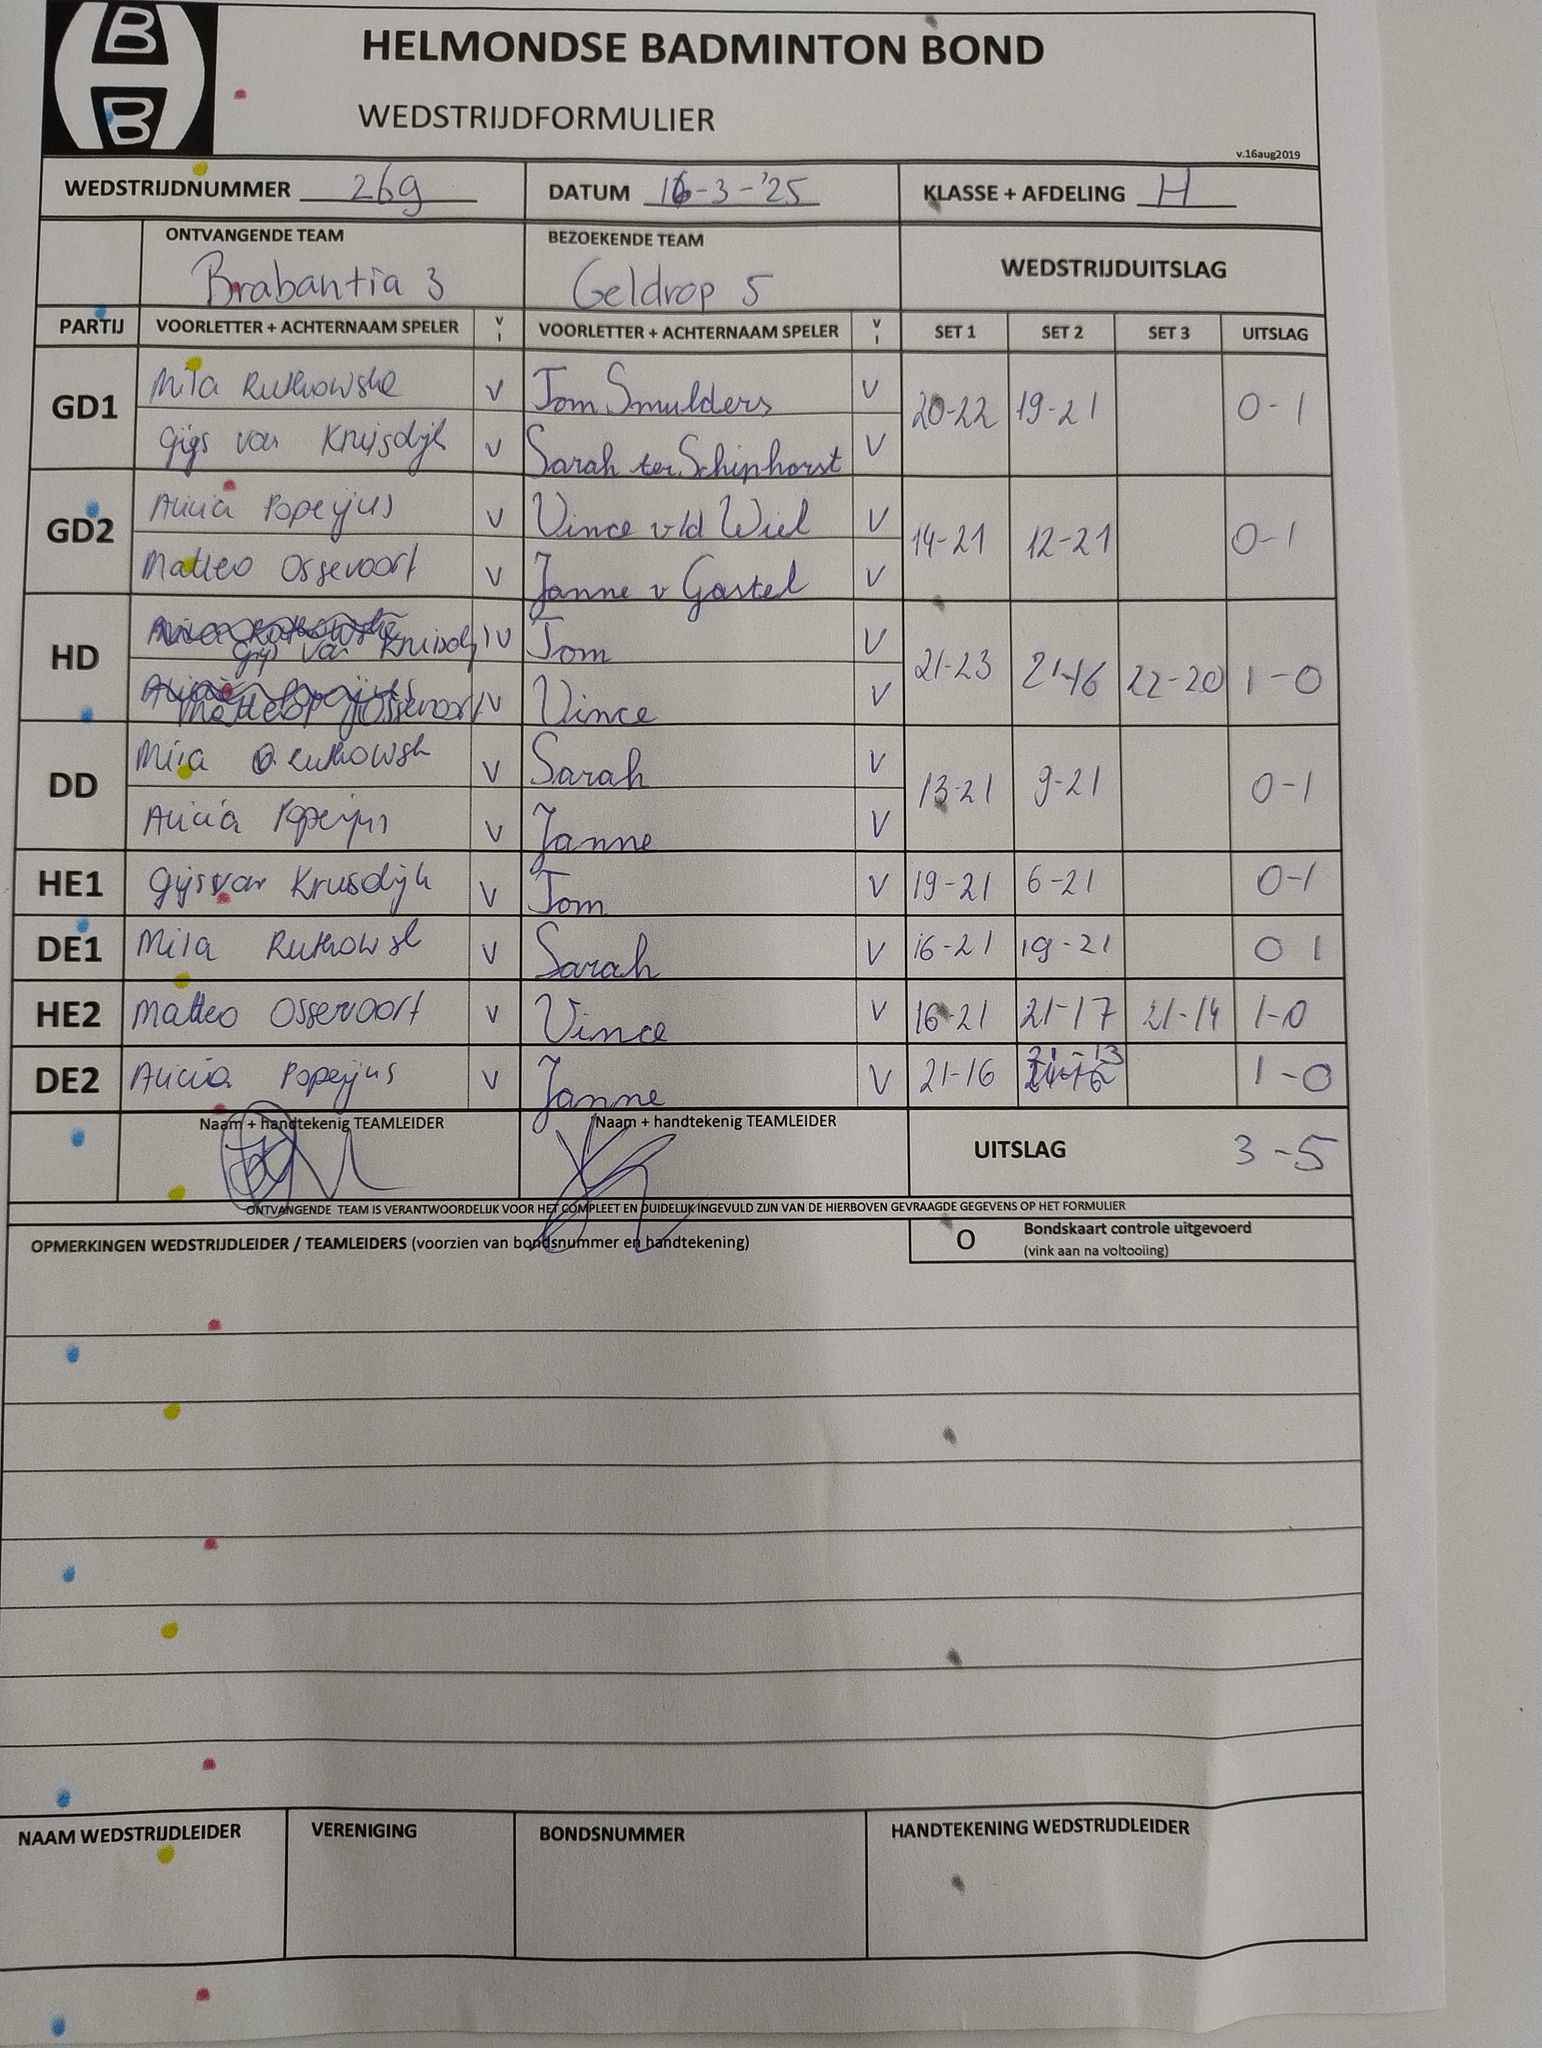 B
B
HELMONDSE BADMINTON BOND
WEDSTRIJDFORMULIER
v.16aug2019
WEDSTRIJDNUMMER 269 DATUM 16-3-'25 KLASSE + AFDELING H
ONTVANGENDE TEAM BEZOEKENDE TEAM WEDSTRIJDUITSLAG
Brabantia 3 Geldrop 5
PARTIJ VOORLETTER + ACHTERNAAM SPELER V I VOORLETTER + ACHTERNAAM SPELER V I SET 1 SET 2 SET 3 UITSLAG
GD1 Mila V Tom Smulders V 20-22 19-21 0-1
van Kruisdijk V Sarah ter Schiphorst V
GD2 Alicia Popeijus V Vince v/d Wiel V 14-21 12-21 0-1
Matteo Ossevoort V Janne v Gastel V
HD van V Tom V 21-23 21-16 22-20 1-0
V Vince V
DD V Sarah V 13-21 9-21 0-1
Alicia Popeijus V Janne V
HE1 Gijs van Krusdijk V Tom V 19-21 6-21 0-1
DE1 V Sarah V 16-21 19-21 0 1
HE2 Matteo Ossevoort V Vince V 16-21 21-17 21-14 1-0
DE2 Alicia Popeijus V Janne V 21-16 21-13 1-0
Naam + handtekenig TEAMLEIDER Naam + handtekenig TEAMLEIDER UITSLAG 3-5
ONTVANGENDE TEAM IS VERANTWOORDELIJK VOOR HET COMPLEET EN DUIDELIJK INGEVULD ZIJN VAN DE HIERBOVEN GEVRAAGDE GEGEVENS OP HET FORMULIER
OPMERKINGEN WEDSTRIJDLEIDER / TEAMLEIDERS (voorzien van bondsnummer en handtekening) O Bondskaart controle uitgevoerd
(vink aan na voltooiing)
NAAM WEDSTRIJDLEIDER VERENIGING BONDSNUMMER HANDTEKENING WEDSTRIJDLEIDER